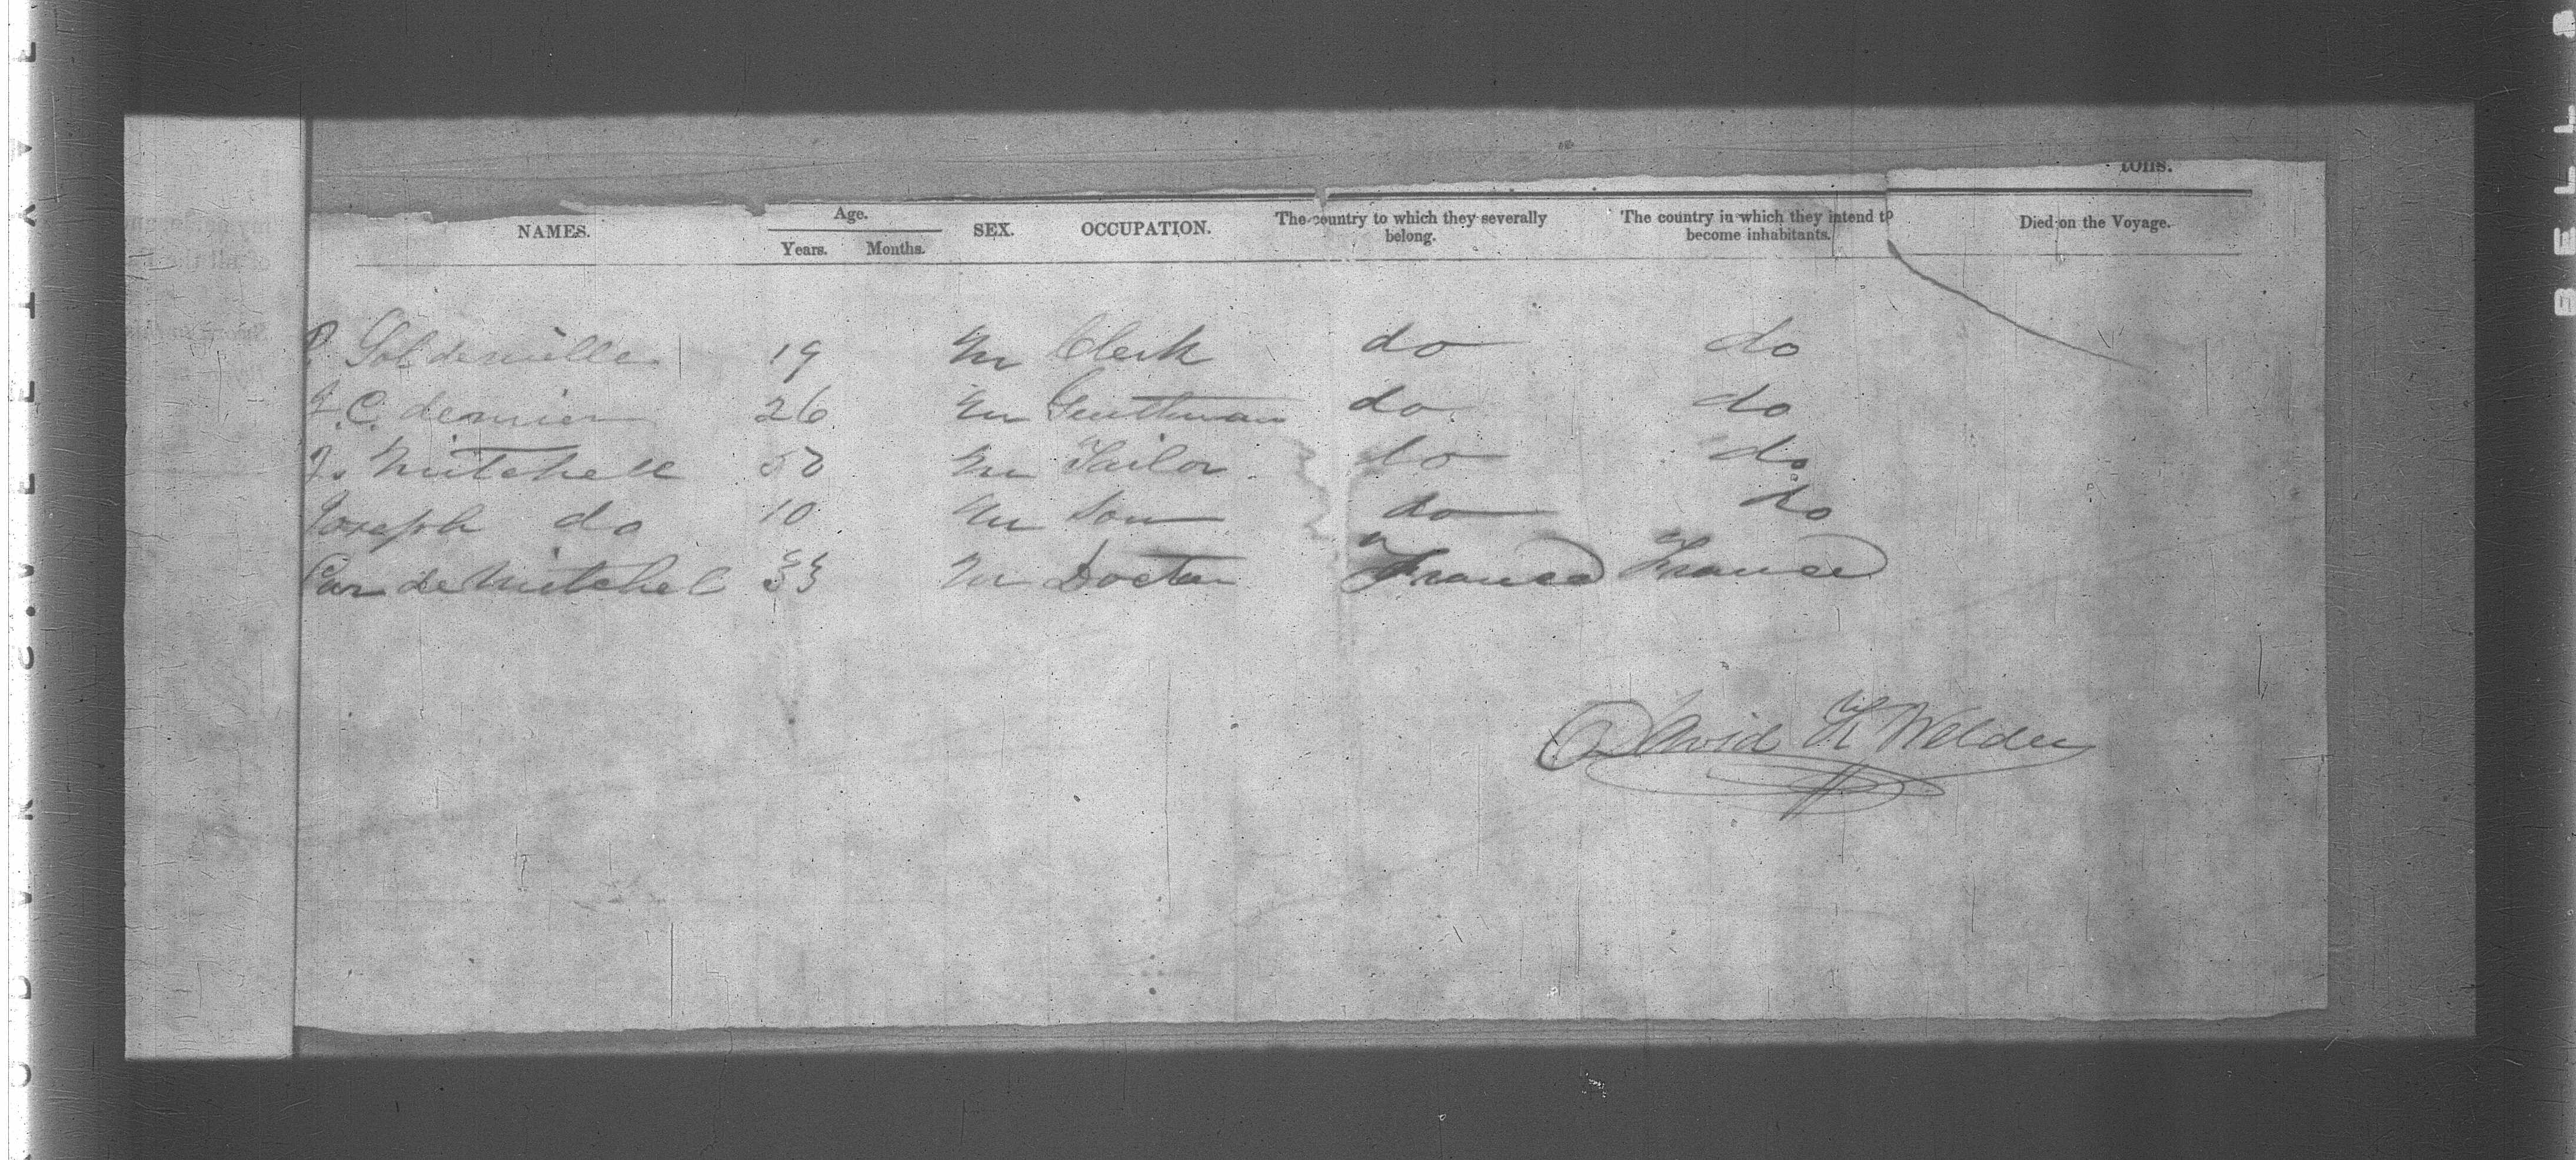 tons.
NAMES. Age. SEX. OCCUPATION. The country to which they severally belong. The country in which they intend to become inhabitants. Died on the Voyage.
Years. Months.
P. Soldenville 19 M Clerk do do
J. C. dernier 26 M Gentleman do do
J. Mitchell M Tailor do do
Joseph do 10 M Son do do
de Mitchel 33 M Doctor France France
David K Welden
BELL